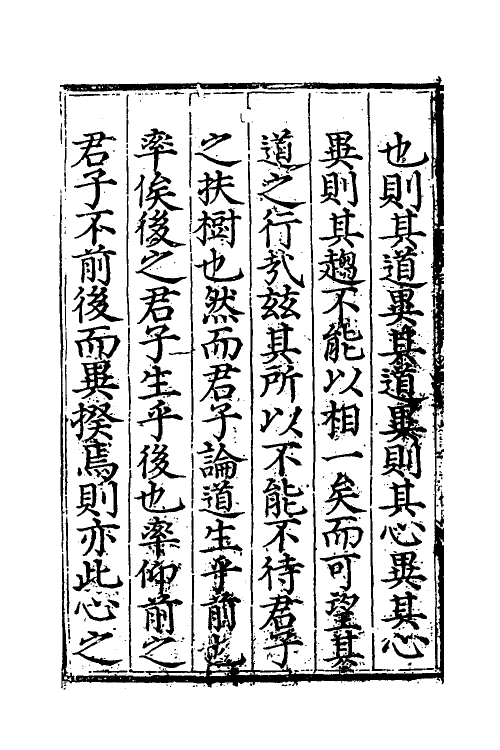 也則其道異其道異則其心異其心
異則其趨不能以相一矣而可望其
道之行㢤玆其所以不能不待君子
之扶樹也然而君子論道生乎前也
率俟後之君子生乎後也率仰前之
君子不前後而異揆焉則亦此心之